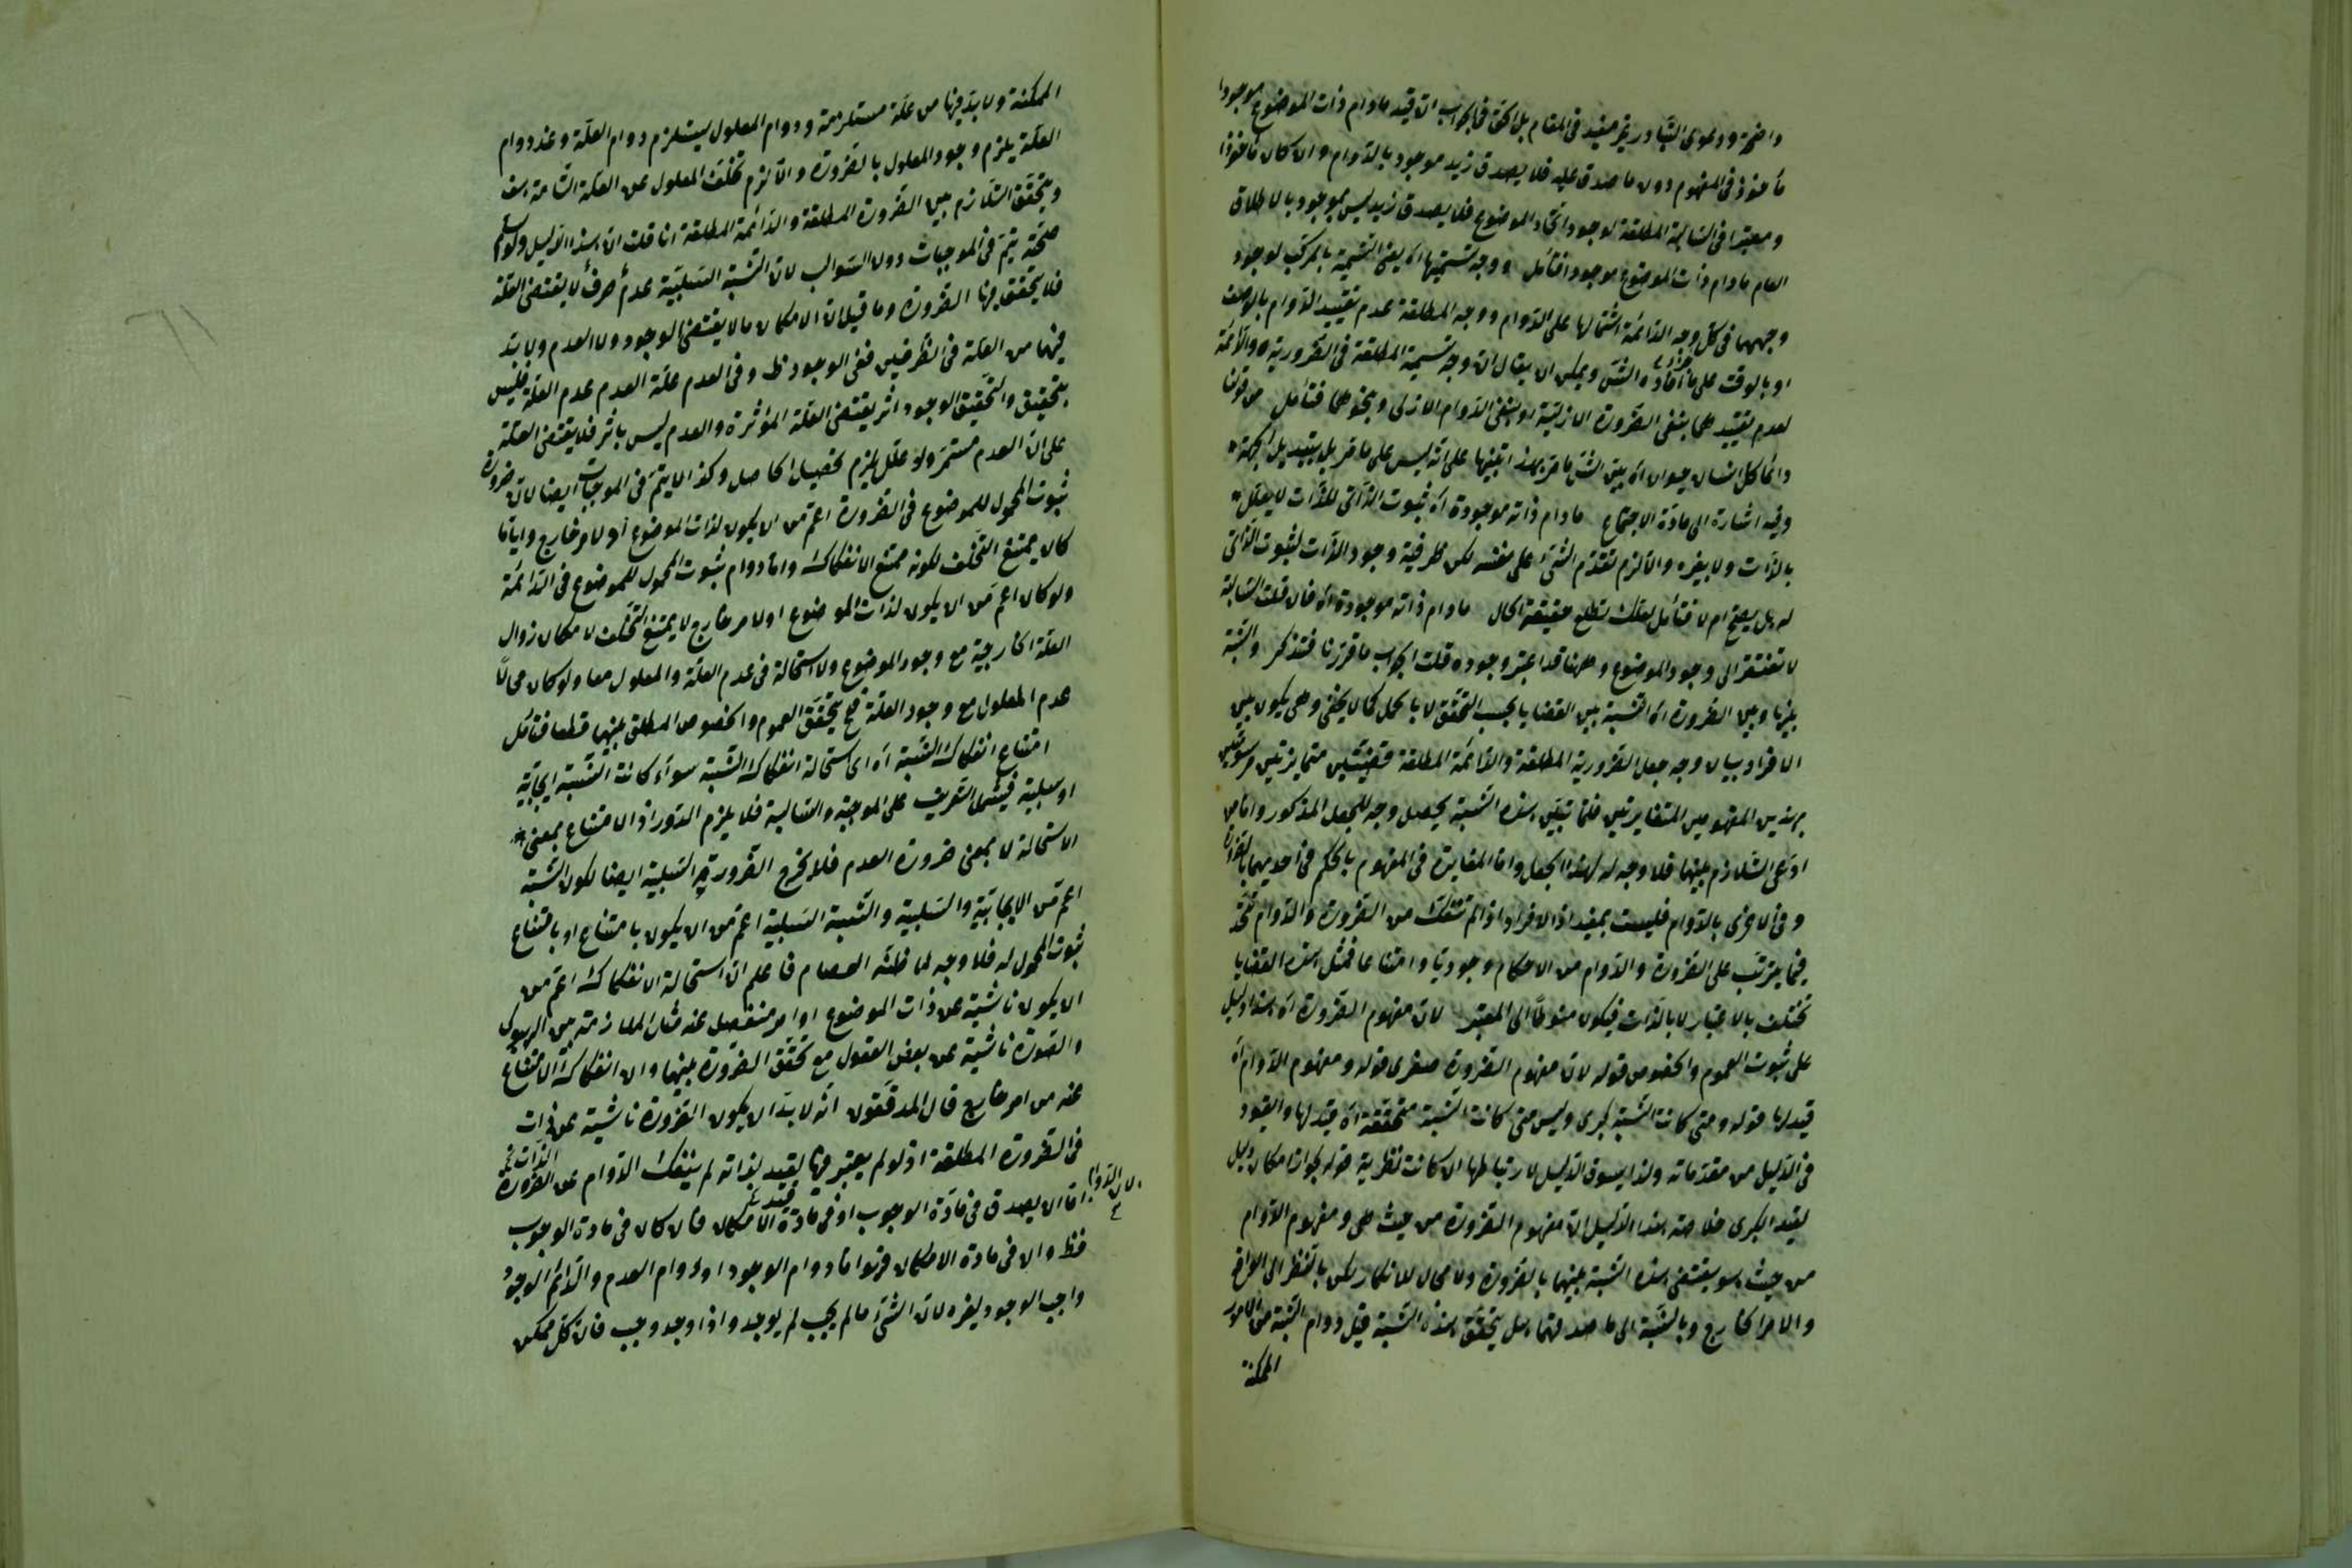 واضحة ودعوى التبادر غير مفيد فى المقام بل الحق فى الجواب ان قيد مادام ذات الموضوع موجودا
مأخوذ فى المفهوم دون ما صدق عليه فلا يصدق زيد موجود بالدوام وان كان مأخوذا
ومعتبرا فى السالبة المطلقة لوجود اتحاد الموضوع فلا يصدق زيد ليس بموجود بالاطلاق
العام مادام ذات الموضوع موجودا فتأمل ووجه تسميتها اه يعنى التسمية بالمركب لوجود
وجههما فى كل وجه الدائمة اشتمالها على الدوام ووجه المطلقة عدم تقييد الدوام بالوصف
او بالوقت على ما افاده الشئ ويمكن ان يقال ان وجه تسمية المطلقة فى الضرورية والدائمة
لعدم تقييدهما بنفى الضرورة الازلية او بنفى الدوام الازلى ونحوهما فتأمل من قولنا
دائما كل انسان حيوان اه بين الش ما مر بهذا تنبيها على انه ليس على ما مر بل بتبديل الجهة
وفيه اشارة الى مادة الاجتماع مادام ذاته موجودة اه ثبوت الذاتى للذات لا يعلل
بالذات ولا بغيره والا لزم تقدم الشئ على نفسه لكن ظرفية وجود الذات لثبوت الذاتى
له هل يصح ام لا فتأمل لعلك تطلع حقيقة الحال مادام ذاته موجودة اه فان قلت السالبة
لا تفتقر الى وجود الموضوع وههنا قد اعتبر وجوده قلت الجواب ما قررنا فتذكر والنسبة
بينها وبين الضرورة اه النسبة بين القضايا بحسب التحقق لا بالحمل كما لا يخفى وهى يكون بين
الافراد وبيان وجه جعل الضرورية المطلقة والدائمة المطلقة قضيتين متمايزتين
بهذين المفهومين المتغايرتين فلما تبين هذه النسبة يحصل وجه للجعل المذكور واما من
ادعى التلازم بينهما فلا وجه له لهذا الجعل واما المغايرة فى المفهوم بالحكم فى احديهما بالضرورة
وفى الاخرى بالدوام فليست بمفيد اذ الافراد اذا لم تنفك من الضرورة والدوام
فيما يترتب على الضرورة والدوام من الاحكام وجوديا وامتناعا فمثل هذه القضايا
تختلف بالاعتبار لا بالذات فيكون منوطا الى المعتبر لان مفهوم الضرورة اه هذا دليل
على ثبوت العموم والخصوص قوله لان مفهوم الضرورة صغرى قوله ومفهوم الدوام اه
قيد لها قوله ومتى كانت النسبة كبرى وليس متى كانت النسبة متحققة اه قيد لها والقيود
فى الدليل من مقدماته ولذا يسوق الدليل لارتباطها ان كانت نظرية قوله لجواز امكان دليل
لقيد الكبرى خلاصة هذا الدليل ان مفهوم الضرورة من حيث هى ومفهوم الدوام
من حيث هو يقتضى هذه النسبة بينهما بالضرورة ولا مجال للانكار لكن بالنظر الى الواقع
والامر الخارج وبالنسبة الى ما صدقهما هل يتحقق هذه النسبة قيل دوام النسبة من الامور
الممكنة
الممكنة ولا بد فيها من علة مستلزمة ودوام المعلول يستلزم دوام العلة وعند دوام
العلة يلزم وجود المعلول بالضرورة والا لزم تخلف المعلول عن العلة التامة هف
ويتحقق التلازم بين الضرورة المطلقة والدائمة المطلقة انا قلت ان هذا الدليل ولو سلم
صحته يتم فى الموجبات دون السوالب لان النسبة السلبية عدم صرف لا يقتضى العلة
فلا يتحقق فيها الضرورة وما قيل ان الامكان ما لا يقتضى الوجود ولا العدم ولا بد
فيهما من العلة فى الطرفين ففى الوجود ظ وفى العدم علة العدم عدم العلة فليس
بتحقيق والتحقيق الوجود اثر يقتضى العلة المؤثرة والعدم ليس باثر فلا يقتضى العلة
على ان العدم مستمر ولو علل يلزم تحصيل الحاصل وكذا لا يتم فى الموجبات ايضا لان ضرورة
ثبوت المحمول للموضوع فى الضرورة اعم من ان يكون لذات الموضوع او لامر خارج واياما
كان يمتنع التخلف لكونه ممتنع الانفكاك واما دوام ثبوت المحمول للموضوع فى الدائمة
ولو كان اعم من ان يكون لذات الموضوع او لامر خارج لا يمتنع التخلف لامكان زوال
العلة الخارجية مع وجود الموضوع ولا استحالة فى عدم العلة والمعلول معا ولو كان محالا
عدم المعلول مع وجود العلة فح يتحقق العموم والخصوص المطلق بينهما قطعا فتأمل
امتناع انفكاك النسبة اه اى استحالة انفكاك النسبة سواء كانت النسبة ايجابية
او سلبية فيشمل التعريف على الموجبة والسالبة فلا يلزم الدور اذ الامتناع بمعنى
الاستحالة لا بمعنى ضرورة العدم فلا يخرج الضرورية السلبية ايضا لكون النسبة
اعم من الايجابية والسلبية والنسبة السلبية اعم من ان يكون بامتناع او بامتناع
ثبوت المحمول له فلا وجه لما ظنه العصام فاعلم ان استحالة الانفكاك اعم من
ان يكون ناشية عن ذات الموضوع او امر منفصل عنه مثل الملازمة بين الهيولى
والصورة ناشية عن بعض العقول مع تحقق الضرورة بينهما وان انفكاك الامتناع
عنه من امر خارج قال المدققون انه لا بد ان يكون الضرورة ناشية عن ذات
فى الضرورة المطلقة اذ لو لم يعتبر فيها لقيد لذاته لم ينفك الدوام عن الضرورة الذاتية
لان الدوام اما ان يصدق فى مادة الوجوب او فى مادة الامكان فان كان فى مادة الوجوب
فظ وان فى مادة الامكان فهو اما دوام الوجود او دوام العدم والدائم الوجود
واجب الوجود لغيره لان الشئ ما لم يجب لم يوجد واذا وجد وجب فان كل ممكن